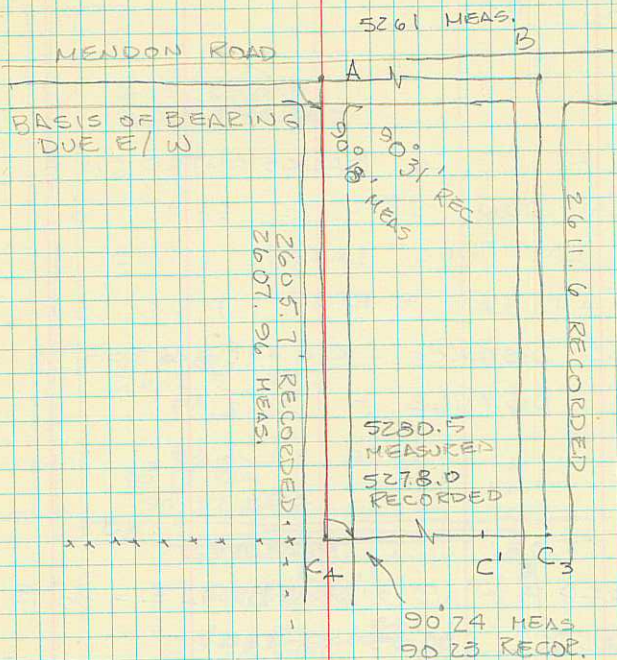 5261 MEAS.
MENDON ROAD
A
B
BASIS OF BEARING
DUE E/W
90° 31' REC
MEAS
2605.7 RECORDED
2607.96 MEAS.
2611.6 RECORDED
5280.5
MEASURED
5278.0
RECORDED
C4
C'
C3
90°24 MEAS
90 23 RECOR.